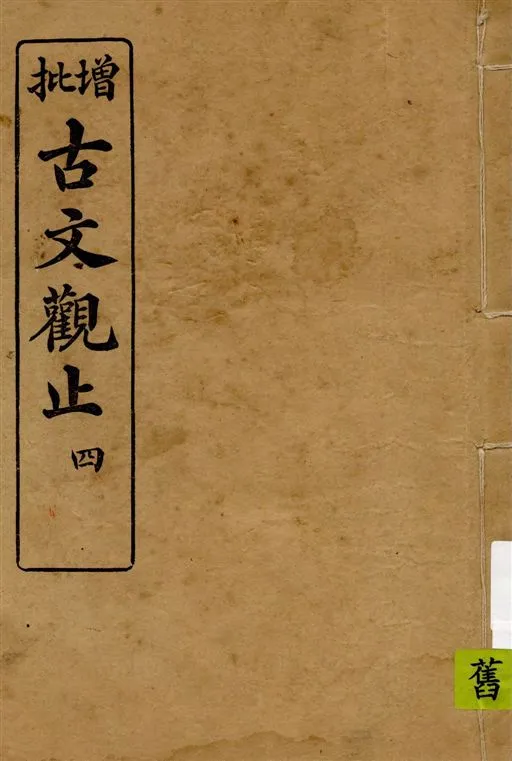 增批
古文觀止
四
舊